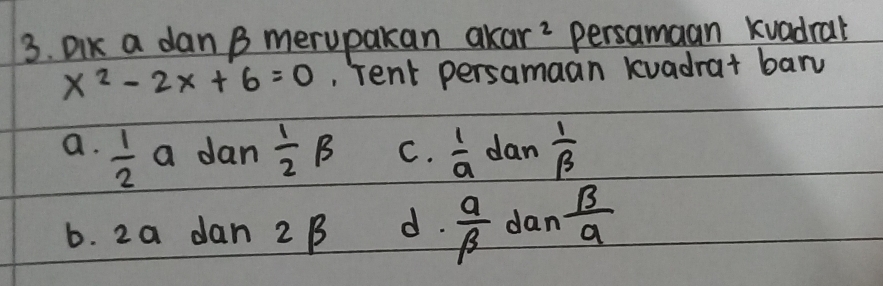 3. Dik a dan β merupakan akar² persamaan kuadrat
x² - 2x + 6 = 0, Tent persamaan kuadrat baru
a. 1/2 a dan 1/2 β c. 1/a dan 1/β
b. 2a dan 2β d. a/β dan β/a